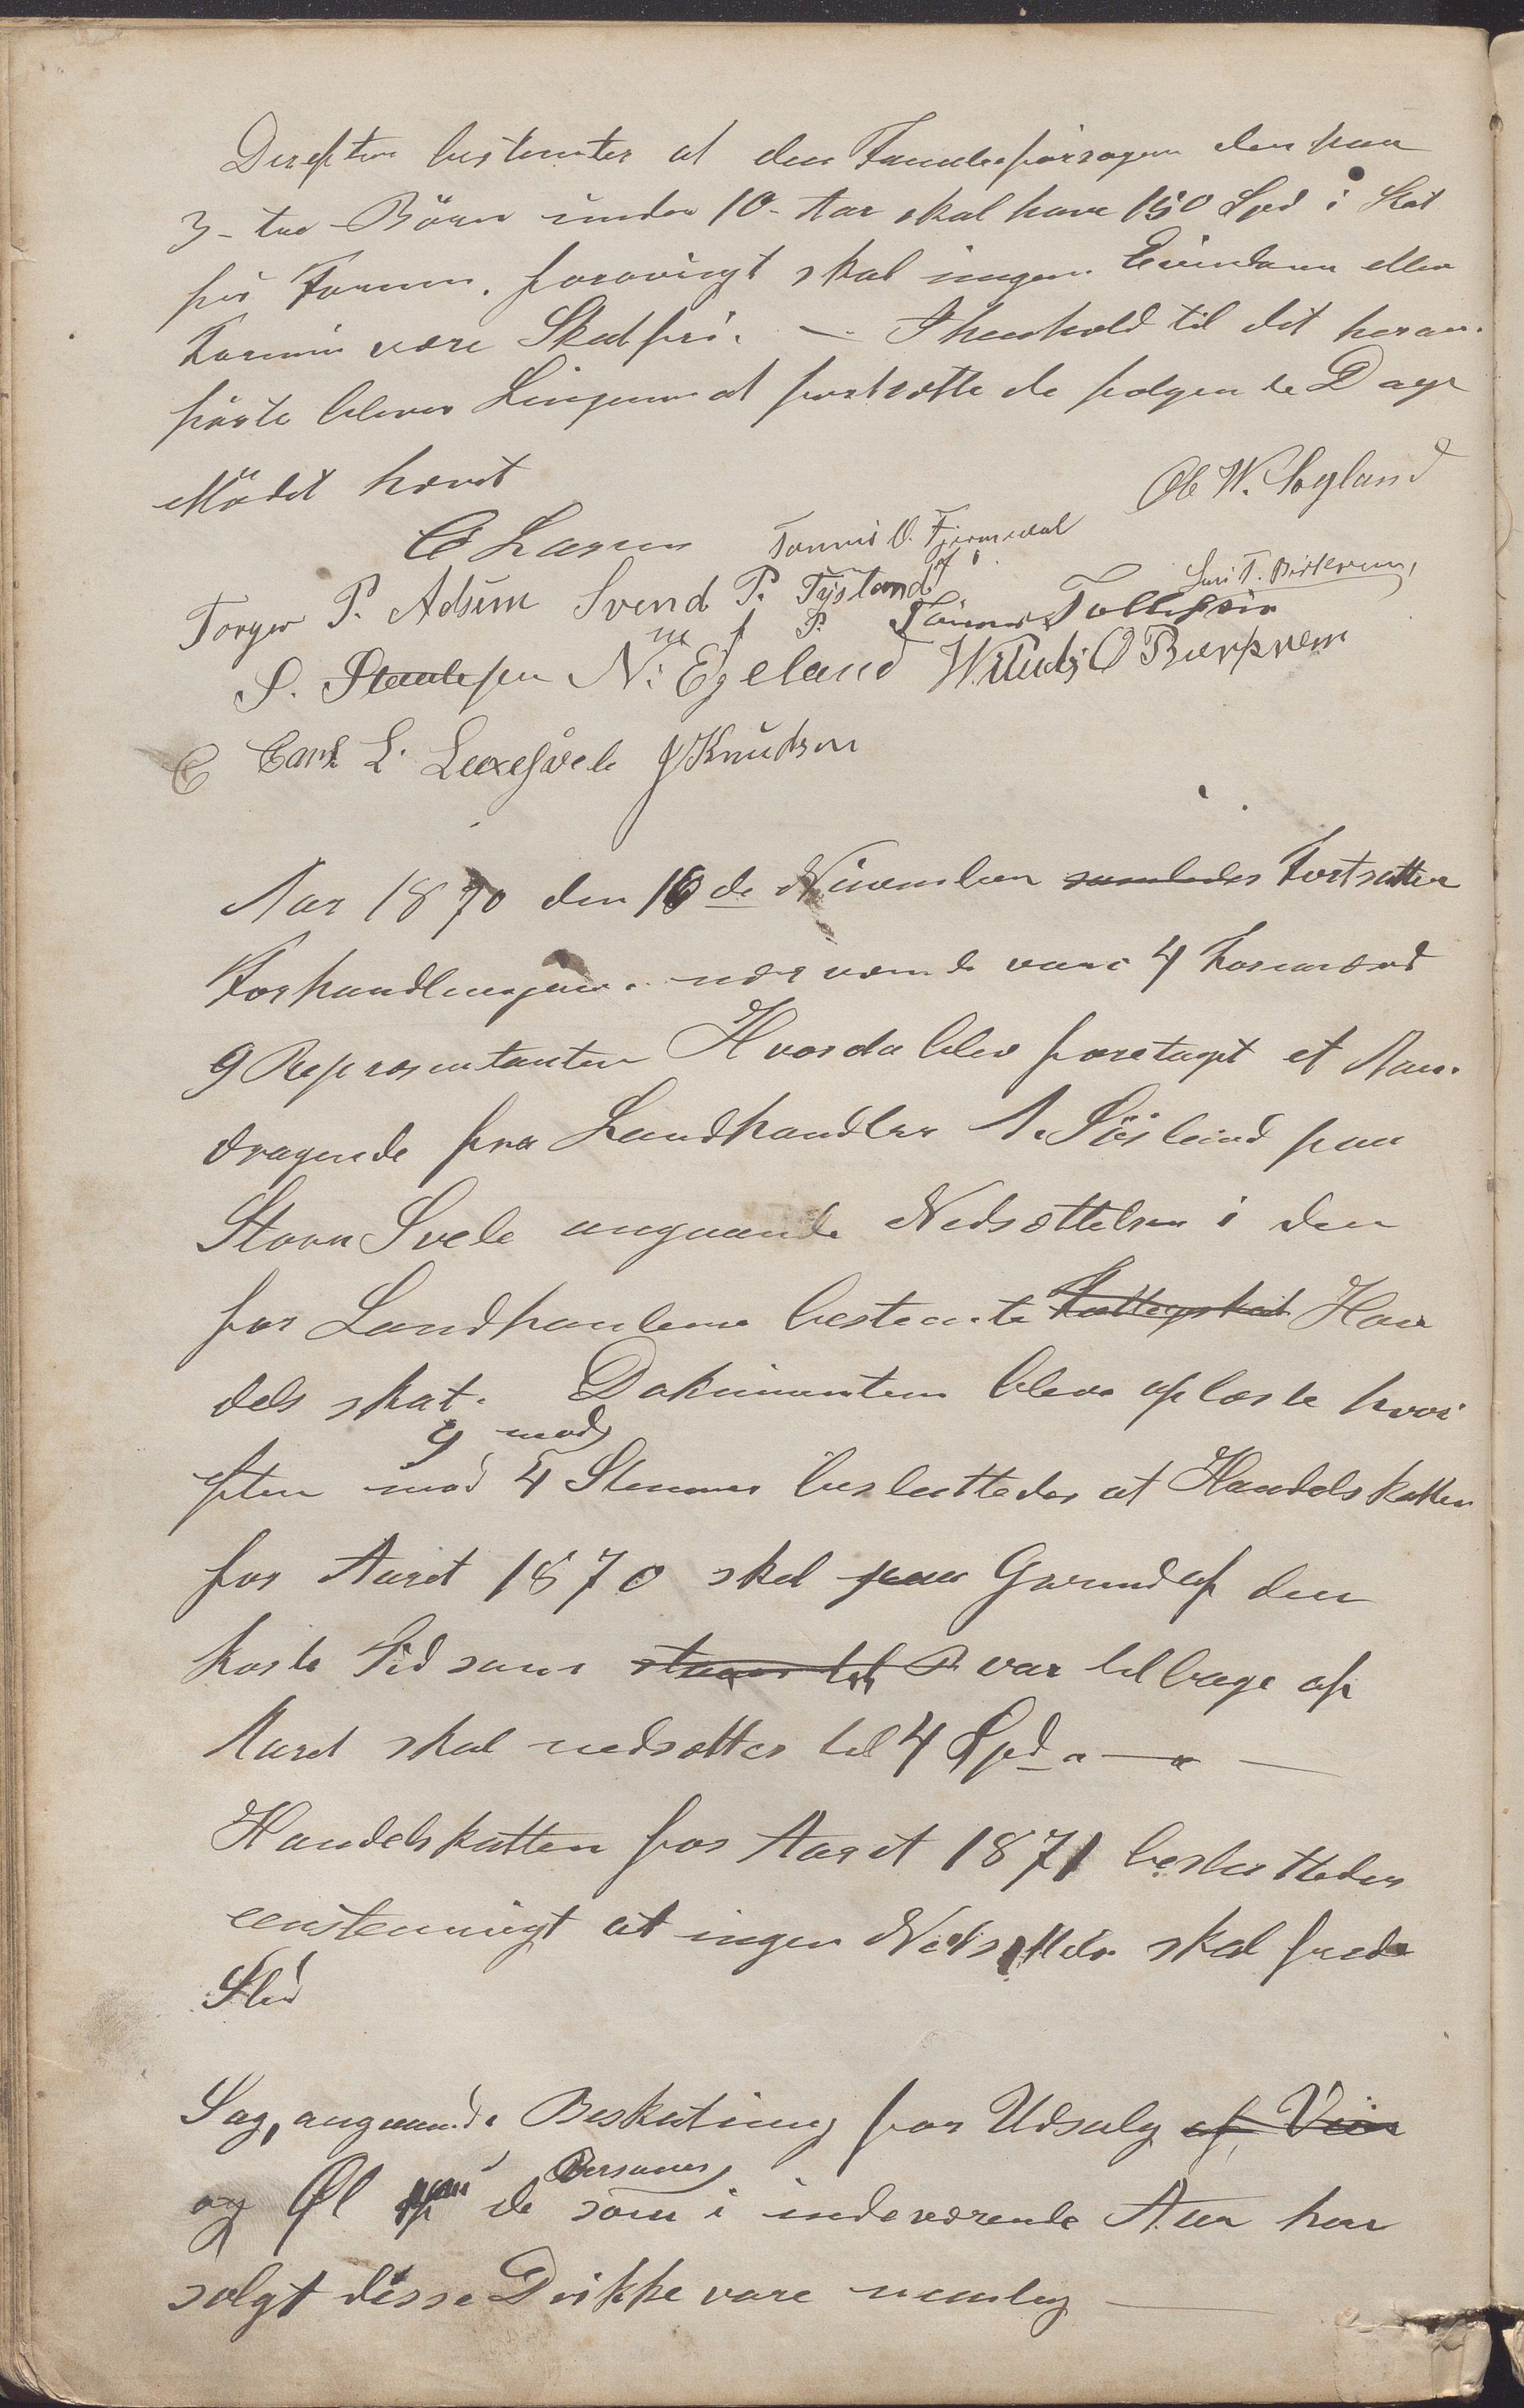 Derefter bestemtes at den Familieforsorgere der har
3-tre Börn under 10-Aar skal have 150 Spd i Skat
fri Formue. forøvrigt skal ingen Eiendom eller
Formue være Skatfri. — I henhold til det heran-
førte blever Ligningen at fortsætte de følgende Dage
Mödet hævet
Ole W. Sogland
C Larsen Tønnes O. Fjermedal
Torger P. Adsem Svend P. Tjsland Sven T. Birkrem,
m f P. Tönnes Tollefsen
S. Stenlesen N. Egeland Willads O Burkrem
C Carl L. Lexesvele J Knudsen
Aar 1870 den 16de November samledes Fortsatte
Forhandlingerne. nærværende vare 4 Formænd
9 Repræsentanter Hvorda blev foretaget et An-
dragende fra Landhandler A. Sösland paa
Store Svele angaaende Nedsættelsen i den
for Landhandlerne bestemte Handels
dels skat. Dokumenterne bleve oplæste hvor
9 mod
efter mod 4 Stemmer besluttedes at Handelskatten
for Aaret 1870 skal paa Grund af den
korte Tid som var tilbage af
Aaret skal nedsættes til 4 Spd. —
Handelskatten for Aaret 1871 besluttedes
eenstemmigt at ingen Nedsættelse skal finde
Sted
Sag, angaaende Beskatning for Udsalg af Viin
Personer
og Øl paa de som i indeværende Aar har
solgt disse Drikkevare nemlig —